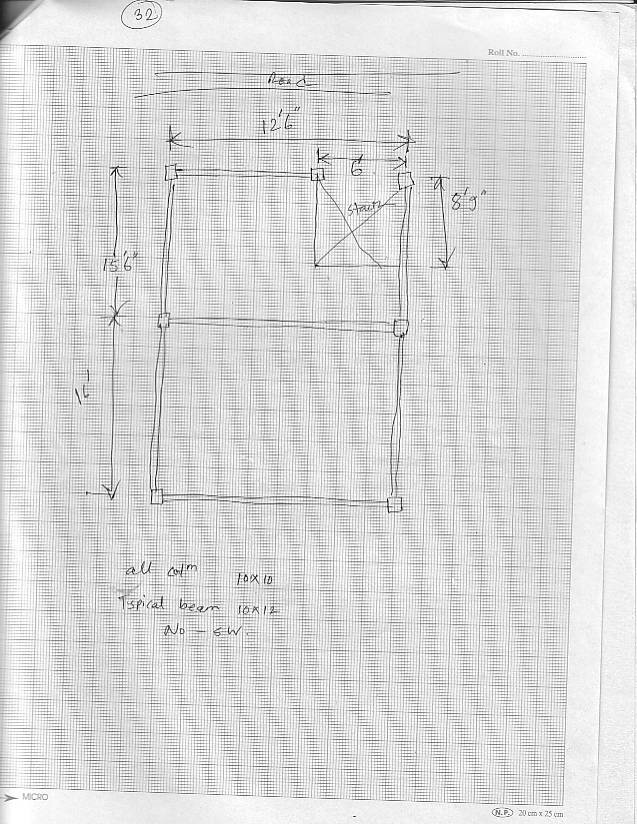 32
Roll No.
Road
12'6"
6'
Stair
8'9"
15'6"
all colm 10x10
Typical beam 10x12
No - SW.
MICRO
N.P. 20 cm x 25 cm